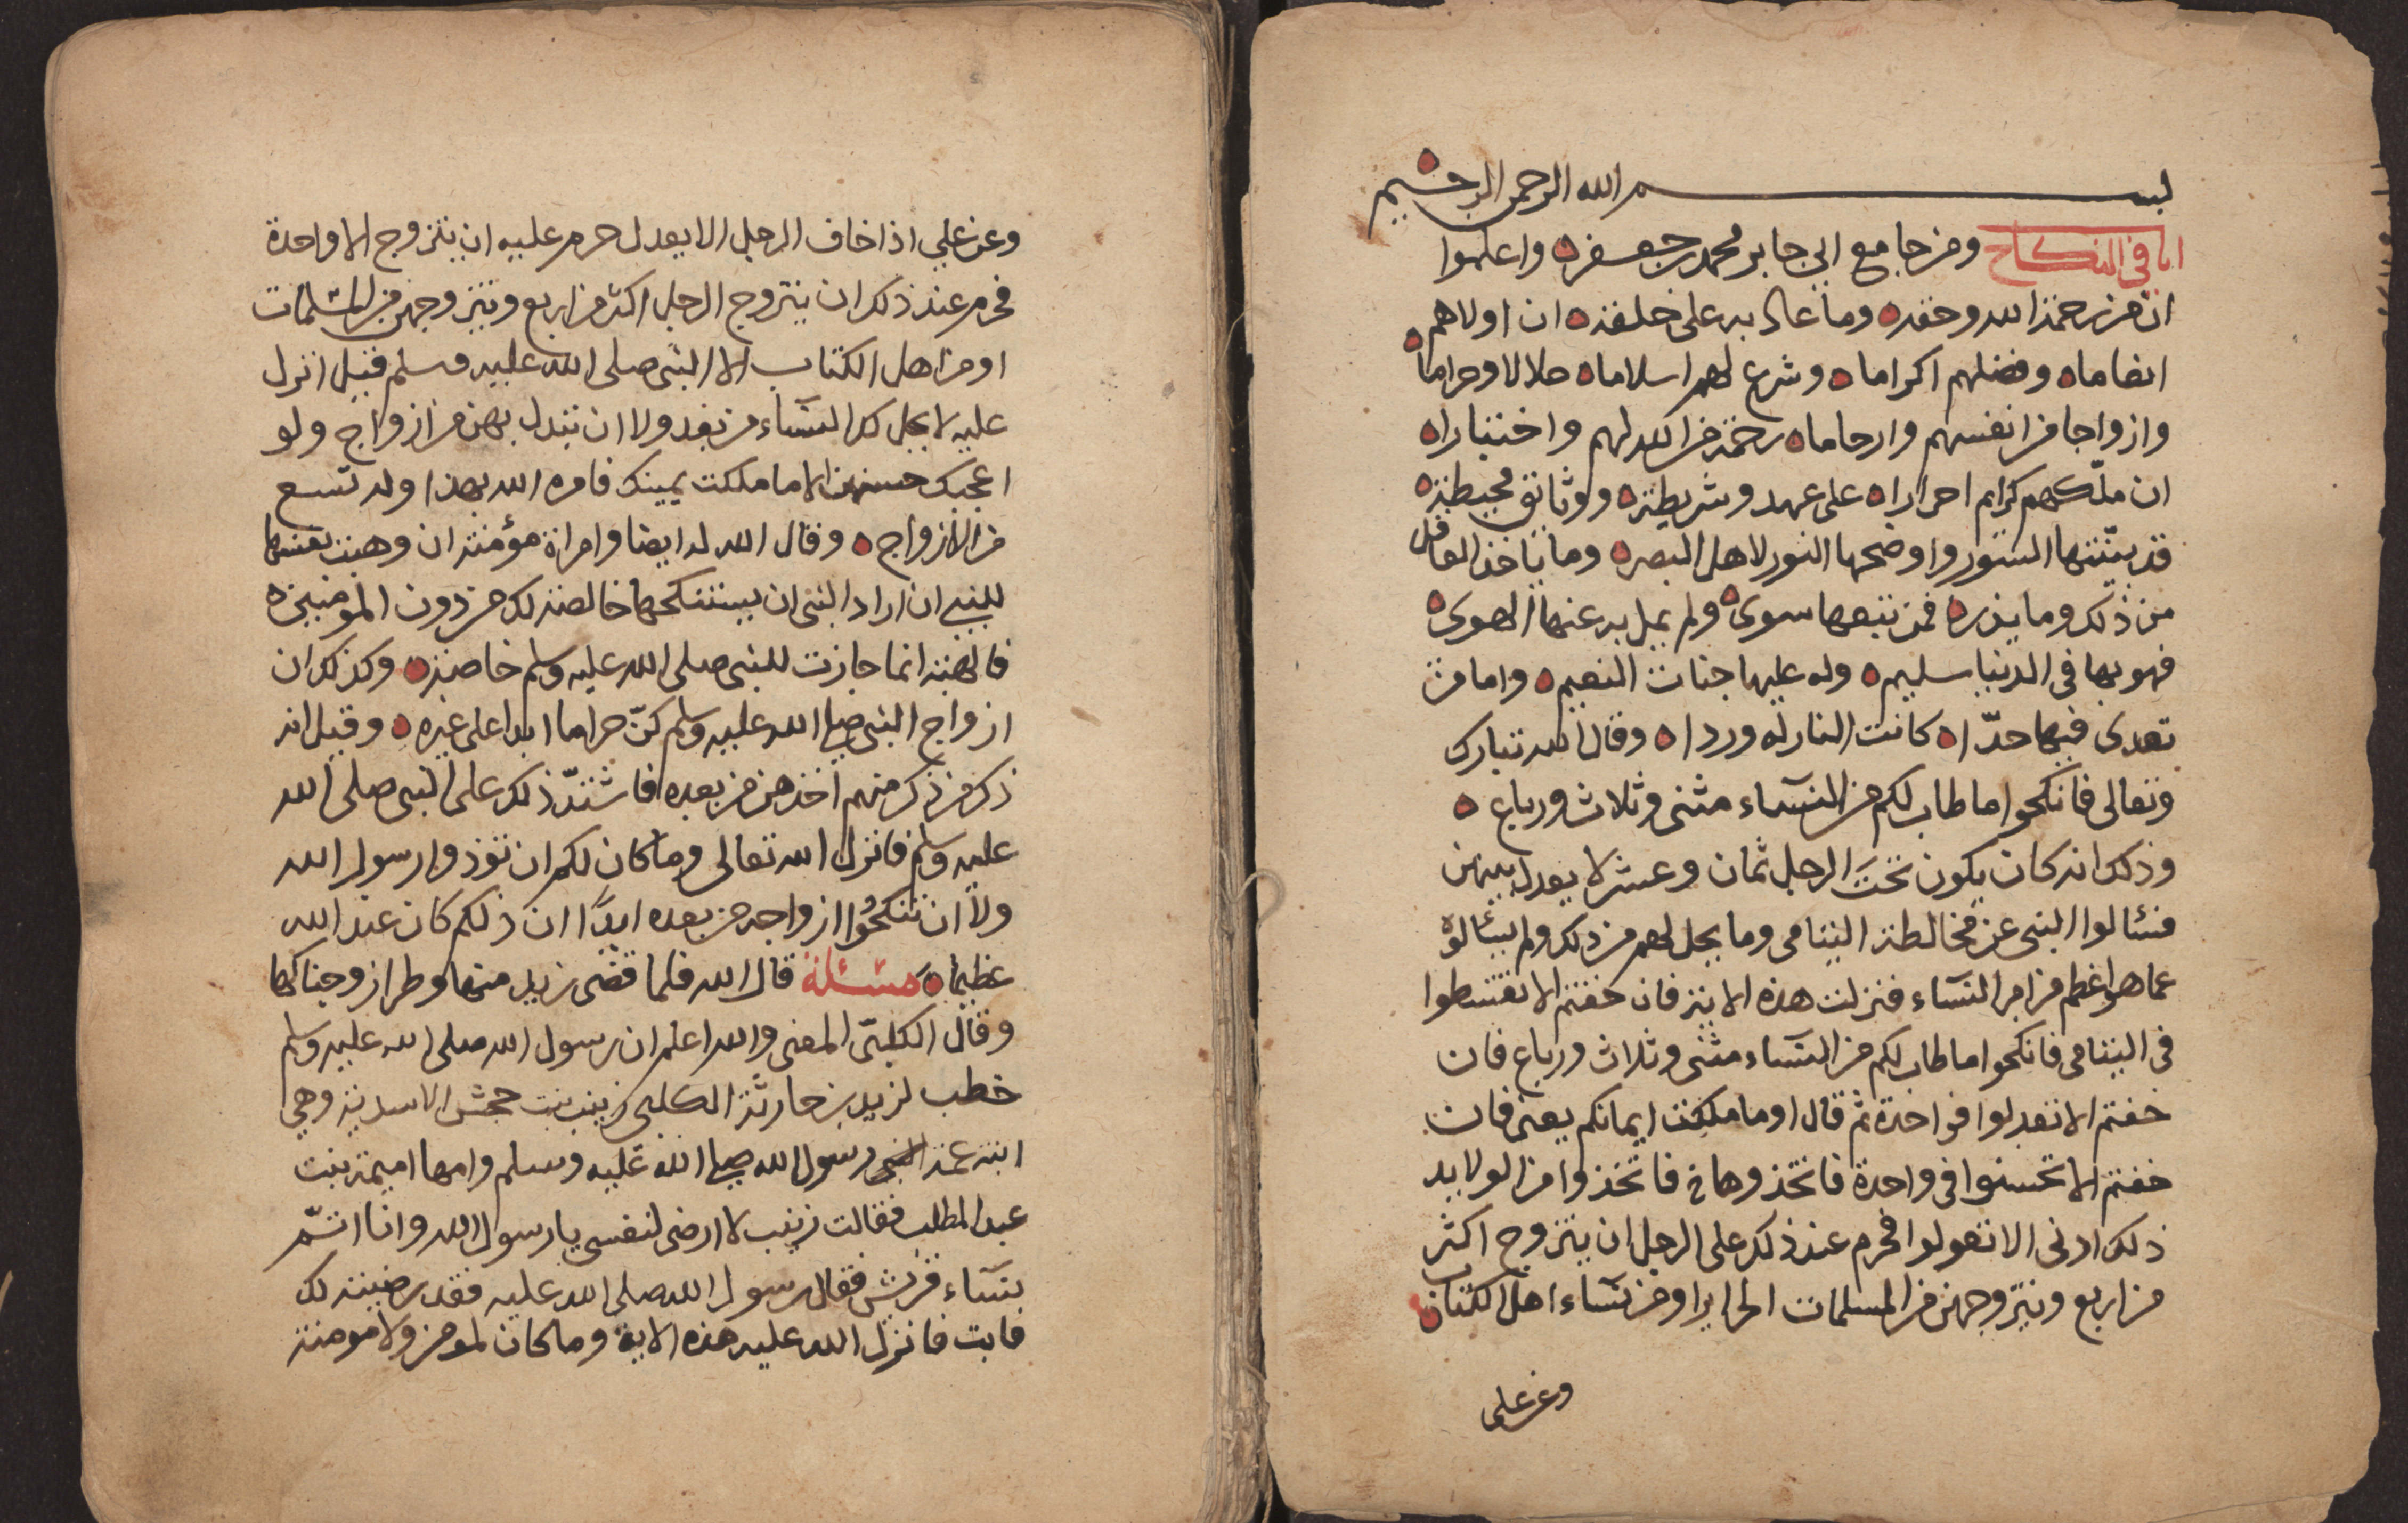 بسم الله الرحمن الرحيم
في النكاح ومن جامع ابي جابر محمد بن جعفر ه واعلموا
ان من رحمة الله وحقه ه وما عاد به على خلقه ه ان اولاهم
انعاما ه وفضلهم اكراما ه وشرع لهم اسلاما ه حلالا وحراما ه
وازواجا من انفسهم وارحاما ه رحمة من الله لهم واختبارا ه
ان ملّكهم كرايم احرارا ه على عهد وشريطة ه ووثائق محيطة ه
قد بيّنتها السنور واوضحها النور لاهل البصر ه وما ياخذ العاقل
من ذلك وما يذر ه فمن تبعها سوى ه ولم يمل به عنها الهوى ه
فهو بها في الدنيا سليم ه وله عليها جنات النعيم ه واما من
تعدى فيها حدّا ه كانت النار له وردا ه وقال الله تبارك
وتعالى فانكحوا ما طاب لكم من النسآء مثنى وثلاث ورباع ه
وذلك انه كان يكون تحت الرجل ثمان وعشر لا يعدل بينهن
فسئالوا النبى عن مخالطة اليتامى وما يحل لهم من ذلك ولم يسئالوه
عما هو اعظم من امر النسآء فنزلت هذه الاية فان خفتم الا تقسطوا
فى اليتامى فانكحوا ما طاب لكم من النسآء مثنى وثلاث ورباع فان
خفتم الا تعدلوا فواحدة ثم قال او ما ملكت ايمانكم يعنى فان
خفتم الا تحسنوا فى واحدة فاتخذوها فاتخذوا من الولايد
ذلك ادنى الا تعولوا فحرم عند ذلك على الرجل ان يتزوج اكثر
من اربع ويتزوجهن من المسلمات الحراير او من نسآء اهل الكتاب
وعن على
وعن علي اذا خاف الرجل الا يعدل حرم عليه ان يتزوج الا واحدة
فحرم عند ذلك ان يتزوج الرجل اكثر من اربع ويتزوجهن من المسلمات
او من اهل الكتاب الا النبى صلى الله عليه وسلم قبل انزل
عليه لا يحل لك النسآء من بعد ولا ان تبدل بهن من ازواج ولو
اعجبك حسنهن الا ما ملكت يمينك فامره الله بهذا وله تسع
من الازواج ه وقال الله له ايضا وامراة مؤمنة ان وهبت نفسها
للنبي ان اراد النبى ان يستنكحها خالصة لك من دون المومنين ه
فالهبة انما جازت للنبى صلى الله عليه وسلم خاصة ه وكذلك ان
ازواج النبى صلى الله عليه وسلم كنّ حراما ابدا على غيره ه وقيل انه
ذكر من ذكر منهم اخذهن من بعده فاشتدّ ذلك على النبى صلى الله
عليه وسلم فانزل الله تعالى وما كان لكم ان توذوا رسول الله
ولا ان تنكحُوا ازواجه من بعده ابدًا ان ذلكم كان عند الله
عظيما ه مسئلة قال الله فلما قضى زيد منها وطرا زوجناكها
وقال الكلبىّ المعنى والله اعلم ان رسول الله صلى الله عليه وسلم
خطب لزيد بن حارثة الكلبى زينب بنت جحش الاسدية وهي
ابنة عمة رسول الله صلى الله عليه وسلم وامها اميمة بنت
عبد المطلب فقالت زينب لا ارضى لنفسى يا رسول الله وانا اتمّ
نسآء قريش فقال رسول الله صلى الله عليه فقد رضيته لك
فابت فانزل الله عليه هذه الاية وما كان لمومن ولا مومنة